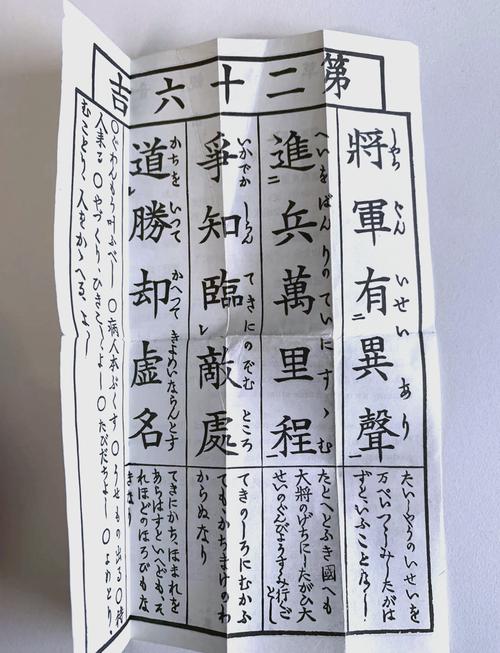 第二十六吉
將軍有異聲
しやう ぐん いせい あり
たいしやうのいせいを
万ぺいつゝしみしたがは
ずといふことなし
進兵萬里程
へいをばんりのていにすゝむ
たとへとふき國へも
大將のげちにしたがひ大
せいのぐんぴやうすゝみ行ごとし
爭知臨敵處
いかでか しらん てきにのぞむ ところ
てきのしろにむかふ
てもかちまけのわ
からぬなり
道勝却虚名
かちを いつて かへつて きよめいならんとす
てきにかち、ほまれを
あらはすといへども、そ
れほどのほろびもな
きなり
〇ぐわんもう叶ふべし 〇病人本ぷくす 〇うせもの出る 〇待
人来る 〇やづくり、ひきこしよし 〇たびだちよし 〇よめとり、
むことり、人をかゝへる、よし